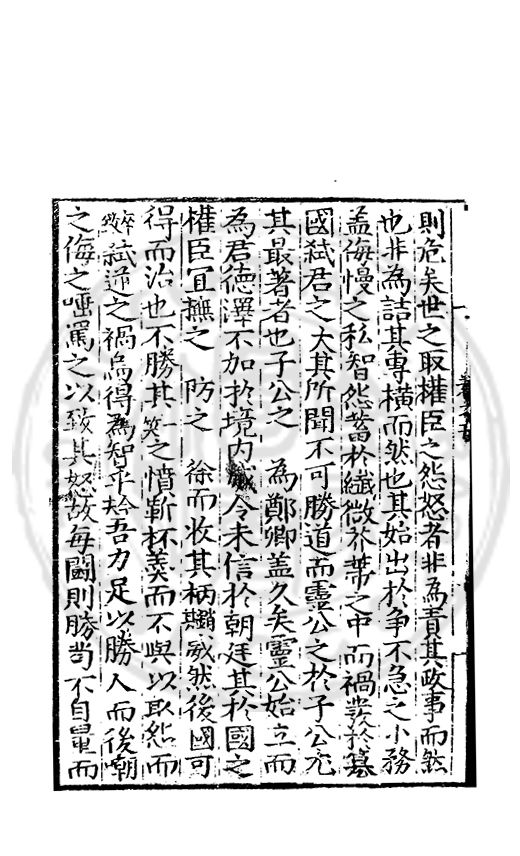 則危矣世之取權臣之怨怒者非為責其政事而然
也非為詰其專橫而然也其始出於爭不急之小務
蓋侮慢之私智怨蓄於纖微芥蔕之中而禍發於簒
國弒君之大其所聞不可勝道而靈公之於子公尤
其最著者也子公之為鄭卿盖久矣靈公始立而
為君德澤不加於境內令未信於朝廷其於國之
權臣宜撫之防之徐而收其柄戢威然後國可
得而治也不勝其一笑之憤靳杯羹而不與以取怨而
卒致弒逆之禍烏得為智乎夫恃吾力足以勝人而後嘲
之侮之唾罵之以致其怒故每鬭則勝苟不自量而